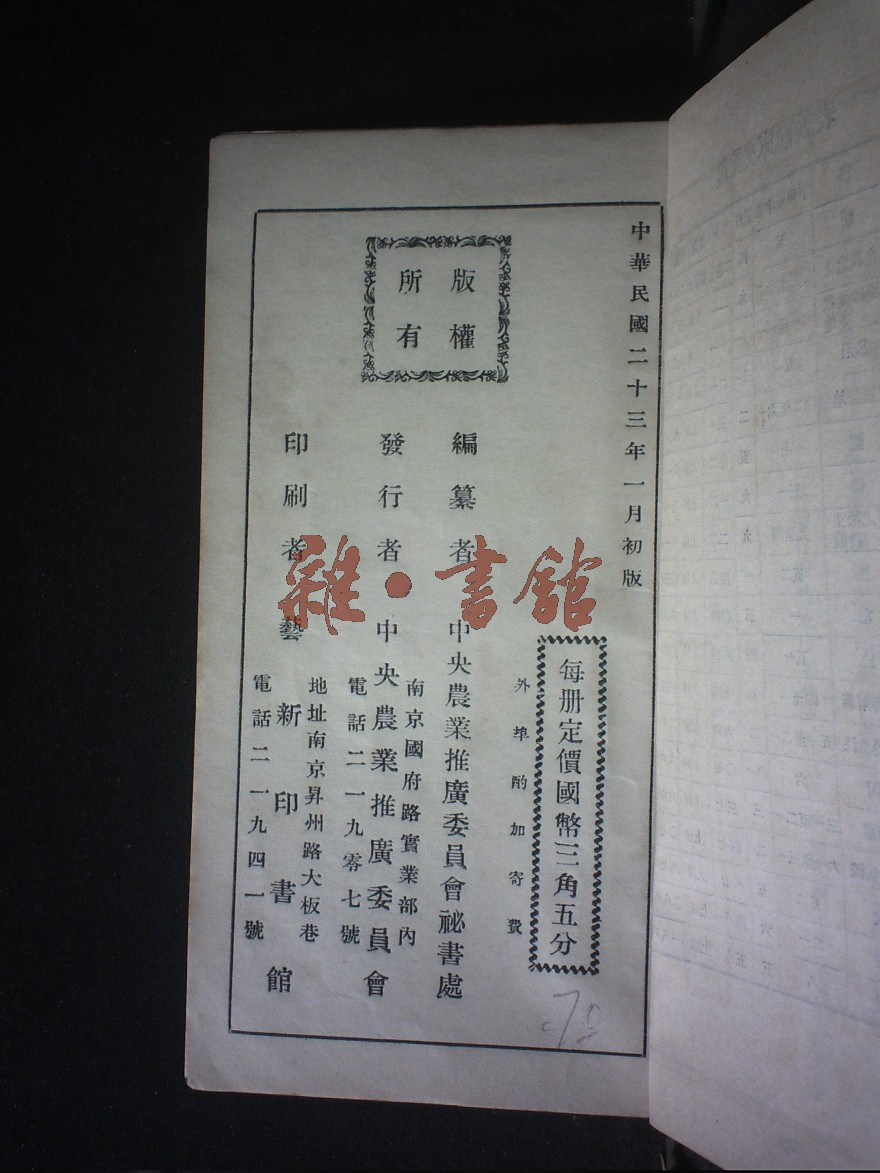 中華民國二十三年一月初版
每册定價國幣三角五分
外埠酌加寄費
版權
所有
編纂者 中央農業推廣委員會祕書處
發行者 中央農業推廣委員會
南京國府路實業部內
電話二一九零七號
印刷者 藝新印書館
地址南京昇州路大板巷
電話二一九四一號
雜·書館